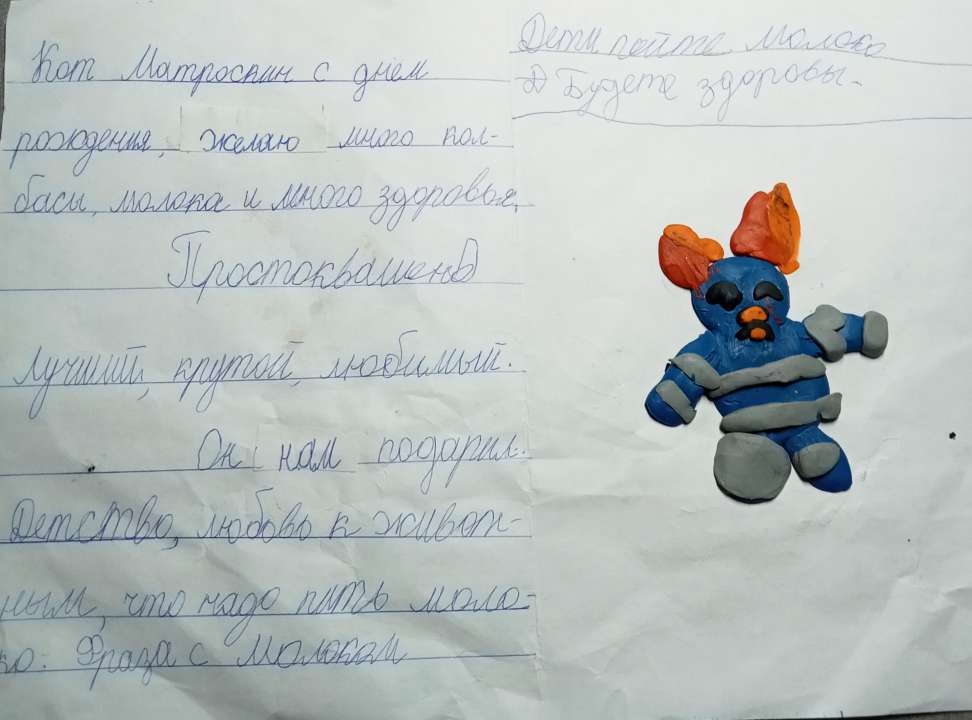 Кот Матроскин с днем
рождения, желаю много кол-
басы, молока и много здоровья,
Простоквашено
Лучший, крутой, любимый.
Он нам подарил.
Детство, любовь к живот-
ным, что надо пить моло-
ко. Фраза с Молоком
Дети пейте молоко
Будете здоровы.